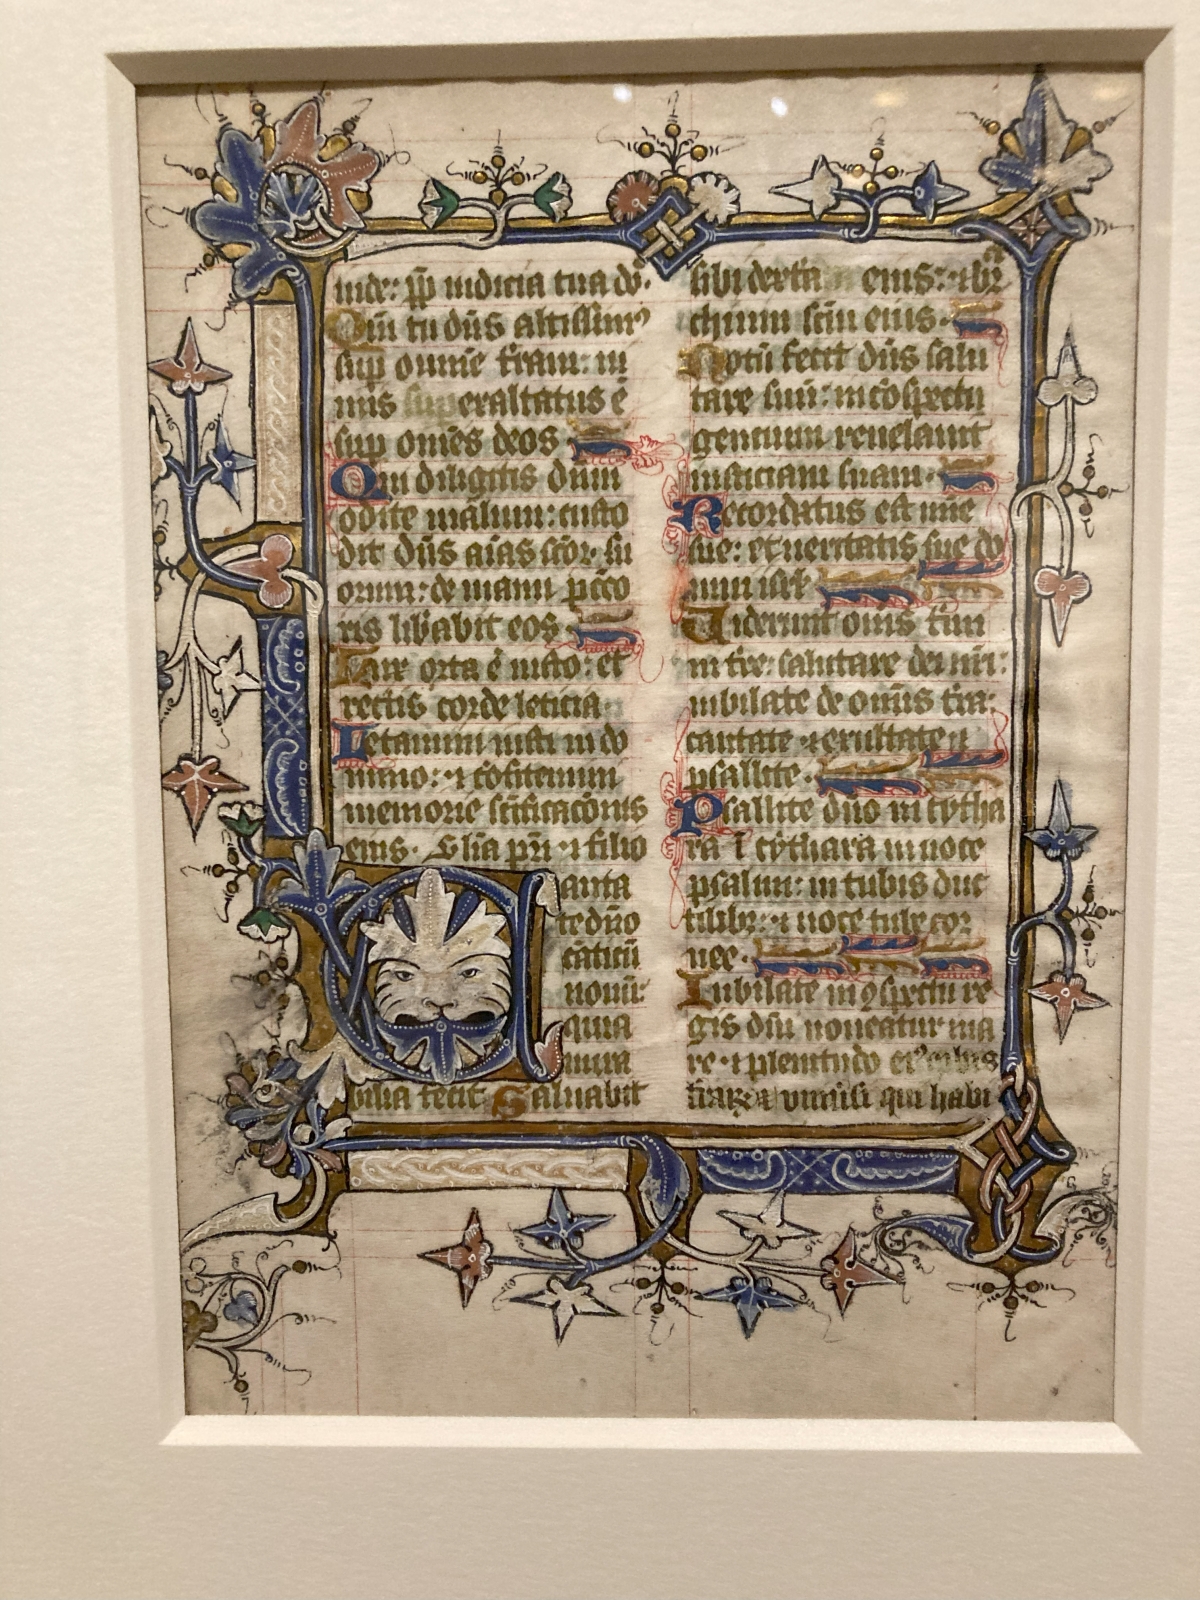 iude: pp̄ iudicia tua dn̄e.
Qm̄ tu dn̄s altissimꝰ
sup omnē t̄ram: ni
mis superaltatus ē
sup om̄es deos
Qui diligitis dn̄m
odite malum: custo
dit dn̄s aīas scōꝝ su
orum: de manu pcc̄o
ris libāabit eos
Lux orta ē iusto: et
rectis corde leticia.
Letamini iusti in do
mino: ⁊ cōfitemini
memorie sc̄ificacōnis
eius. Gl̄ia pr̄i ⁊ filio
Canta
te dn̄o
cāticū
nouū:
quia
mira
bilia fecit Saluabit
sibi dext̄a eius: ⁊ br̄a
chium sc̄m eius.
Notū fecit dn̄s salu
tare suū: in cōspectu
gentium reuelauit
iusticiam suam.
Recordatus est mīe
sue: et ueritatis sue do
mui isrl̄
Viderunt om̄s t̄mi
ni t̄re: salutare dei nr̄i:
iubilate deo om̄is t̄ra:
cantate ⁊ exultate ⁊
psallite.
Psallite dn̄o in cytha
ra ī cythara in uoce
psalmi: in tubis duc
tilibꝫ: ⁊ uoce tube cor
nee.
Iubilate in ꝯspectu re
gis dn̄i moueatur ma
re ⁊ plenitudo eiꝰ orbis
t̄raꝝ ⁊ uniūsi qui habi